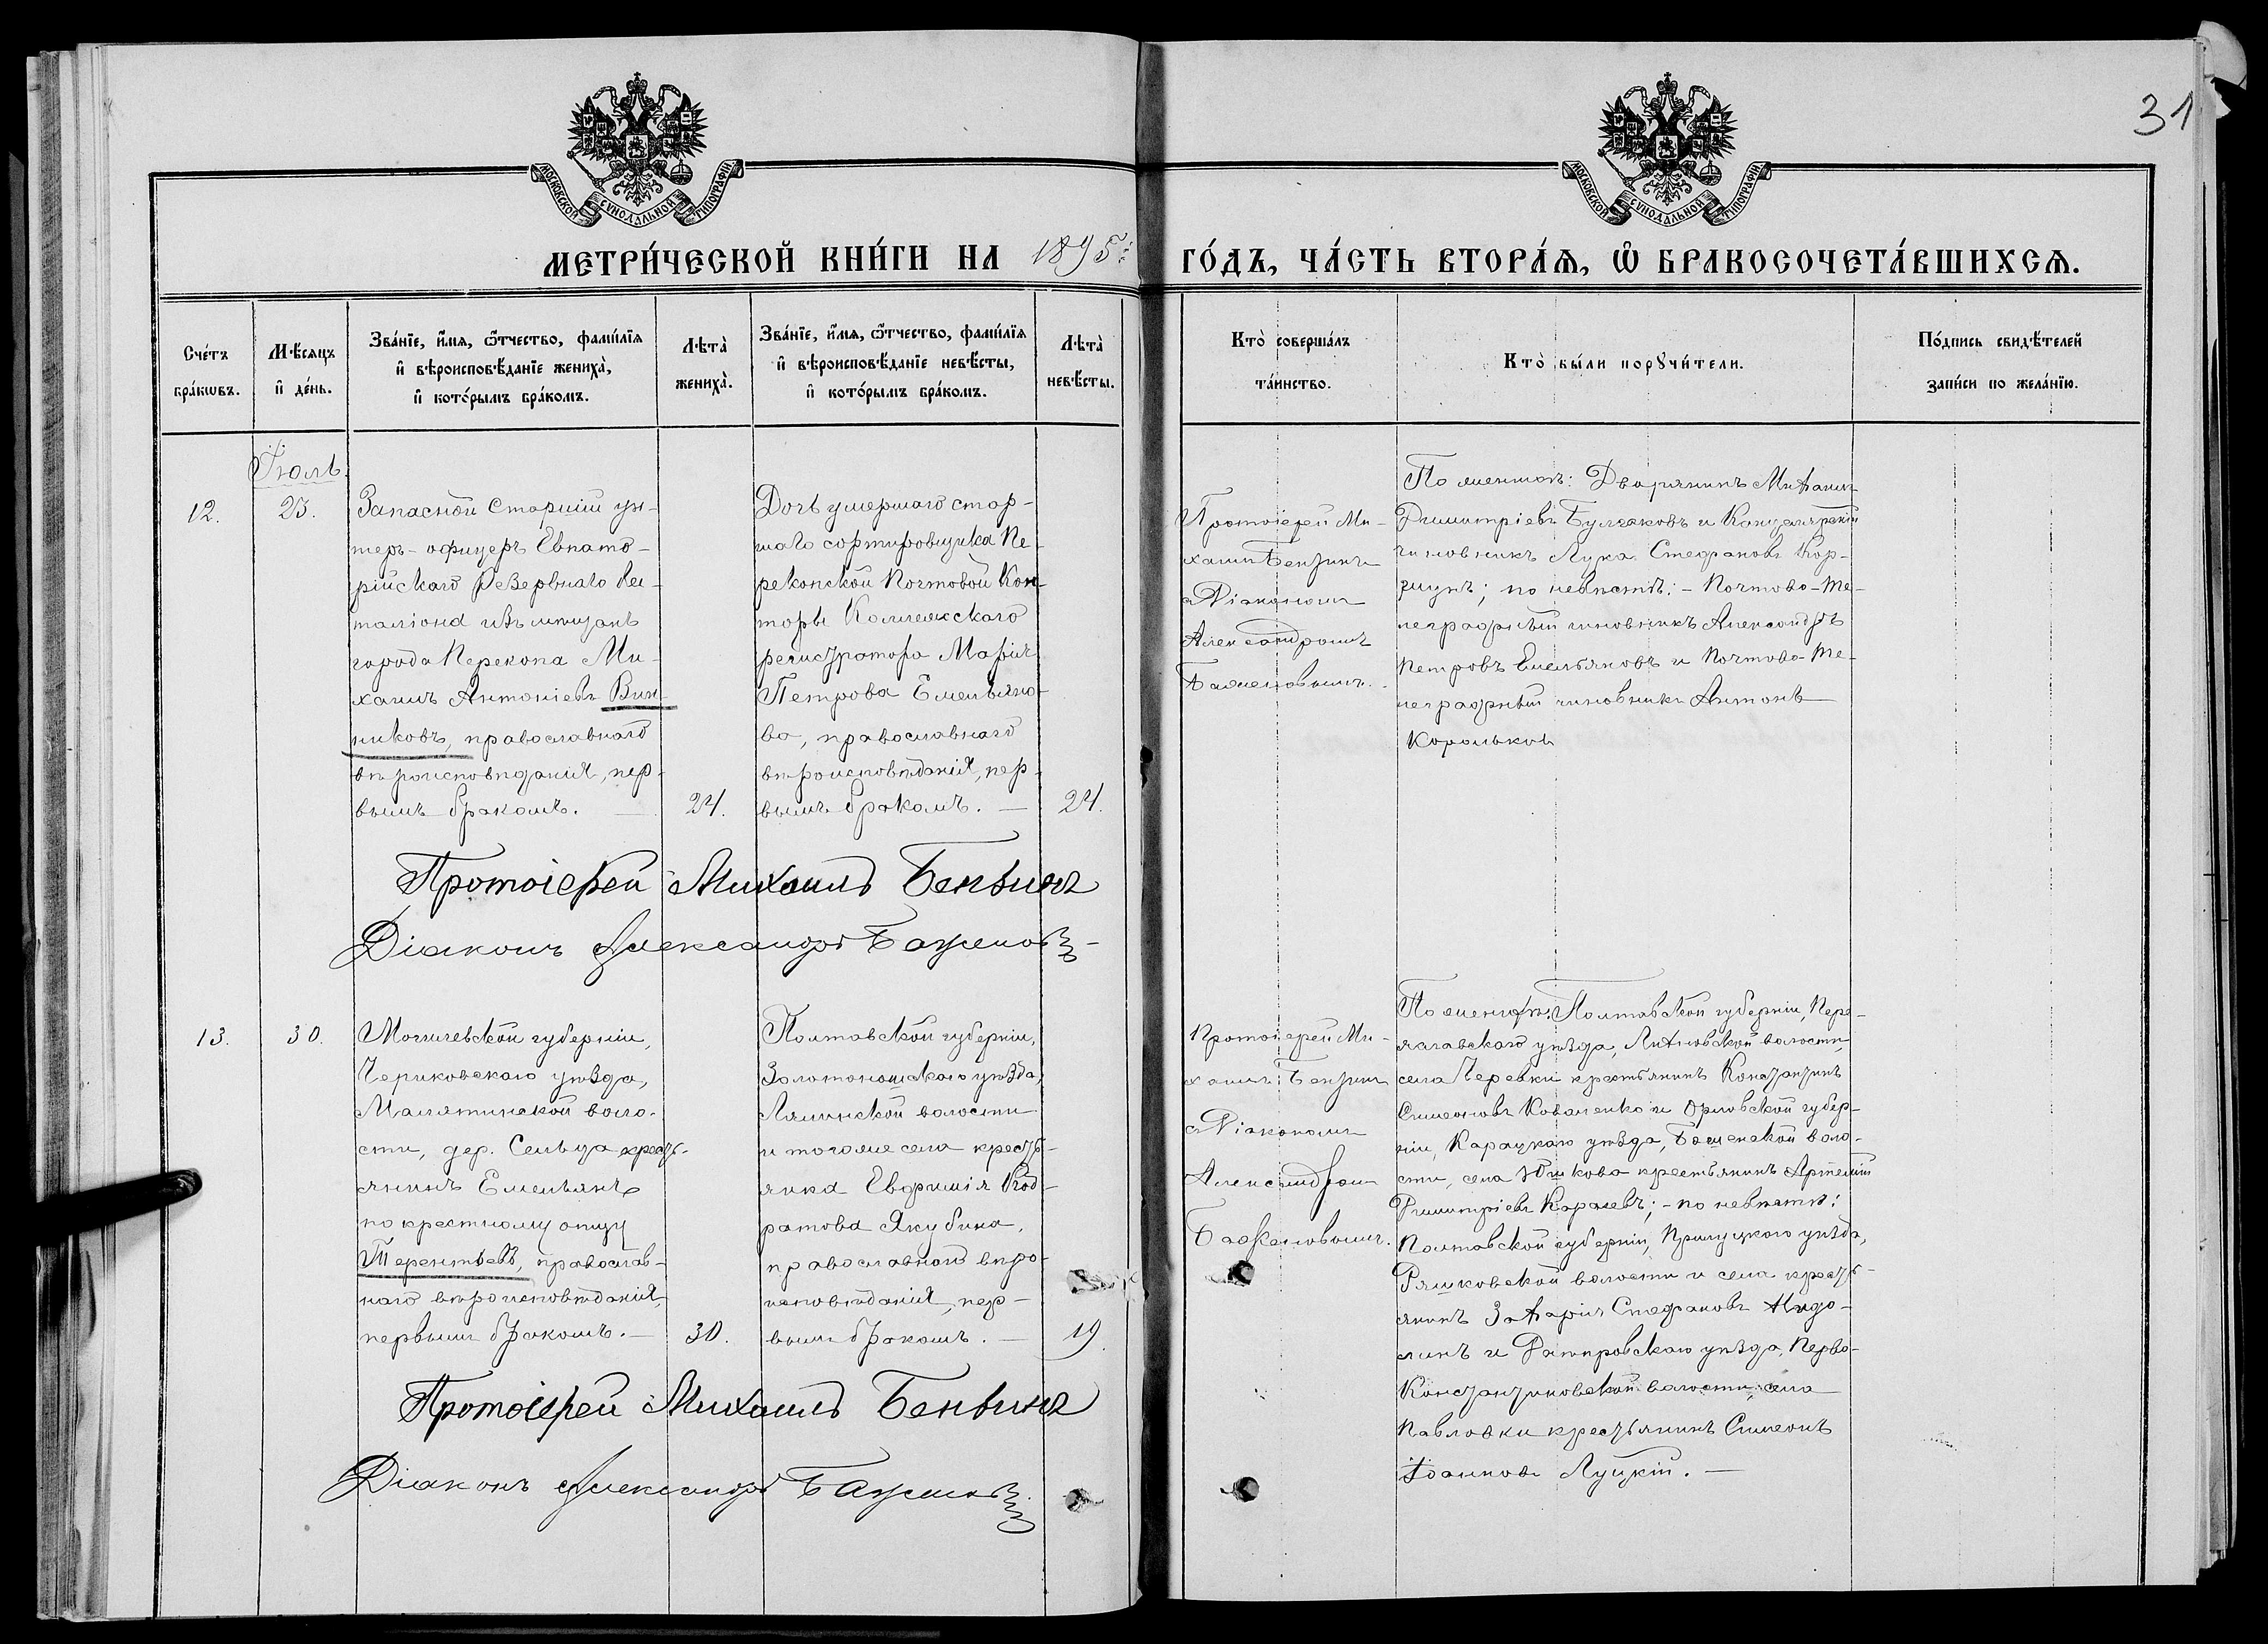 31
МОСКОВСКОЙ СѴНОДАЛЬНОЙ ТИПОГРАФІИ
МОСКОВСКОЙ СѴНОДАЛЬНОЙ ТИПОГРАФІИ
МЕТРИ́ЧЕСКОЙ КНИ́ГИ НА 1895 ГО́ДЪ, ЧА́СТЬ ВТОРА́Ѧ, Ѽ БРАКОСОЧЕТА́ВШИХСѦ.
Сче́тъ
бра́кѡвъ.
Мѣ́сяцъ
и҆ де́нь.
Зва́нїе, и҆́мя, ѻ҆́тчество, фами́лїя
и҆ вѣроисповѣ́данїе жениха̀,
и҆ кото́рымъ бра́комъ.
Лѣта̀
жениха̀.
Зва́нїе, и҆́мя, ѻ҆́тчество, фами́лїя
и҆ вѣроисповѣ́данїе невѣ́сты,
и҆ кото́рымъ бра́комъ.
Лѣта̀
невѣ́сты.
Кто̀ соверша́лъ
та́инство.
Кто̀ бы́ли порꙋчи́тели.
По́дпись свидѣ́телей
за́писи по жела́нїю.
Іюль
12.
23.
Запасной Старшій ун-
теръ-офицеръ Евпато-
рійскаго Резервнаго ба-
таліона изъ мѣщанъ
города Перекопа Ми-
хаилъ Антоніевъ Вин-
никовъ, православнаго
вѣроисповѣданія, пер-
вымъ бракомъ. —
24.
Дочь умершаго стар-
шаго сортировщика Пе-
рекопской Почтовой Кон-
торы Коллежскаго
регистратора Марія
Петрова Емельяно-
ва, православнаго
вѣроисповѣданія, пер-
вымъ бракомъ. —
24.
Протоіерей Ми-
хаилъ Бензинъ
съ Діакономъ
Александромъ
Баженовымъ.
По женихѣ: Дворянинъ Миѳаилъ
Димитріевъ Булгаковъ и Канцелярскій
чиновникъ Лука Стефановъ Кор-
зунъ; по невѣстѣ: - Почтово-Те-
леграфный чиновникъ Александръ
Петровъ Емельяновъ и Почтово-Те-
леграфный чиновникъ Антонъ
Корольков
Протоіерей Михаилъ Бензинъ
Діаконъ Александръ Баженовъ
13.
30.
Могилевской губерніи,
Чериковскаго уѣзда,
Малятинской воло-
сти, дер. Сельца кресть-
янинъ Емельянъ
по крестному отцу
Терентьевъ, православ-
наго вѣроисповѣданія,
первымъ бракомъ. —
30.
Полтавской губерніи,
Золотоношскаго уѣзда,
Лялинской волости
и тогоже села кресть-
янка Евфимія Код-
ратова Якубина,
православнаго вѣро-
исповѣданія, пер-
вымъ бракомъ. —
19.
Протоіерей Ми-
хаилъ Бензинъ
съ Діакономъ
Александром
Баженовымъ.
По женихѣ: Полтавской губерніи, Пере-
яславскаго уѣзда, волости,
села Черевки крестьянинъ Константинъ
Симеоновъ Коваленко и Орловской губер-
ніи, Карацкаго уѣзда, воло-
сти, села Юшкова крестьянинъ Артемій
Димитріевъ Каралевъ; - по невѣстѣ:
Полтавской губерніи, Прилуцкаго уѣзда,
Ряшковской волости и села кресть-
янинъ Заѳарія Стефановъ
и Днѣпровскаго уѣзда, Перво-
Константиновской волости, села
Павловки крестьянинъ Симеонъ
Іоанновъ Луцкій. —
Протоіерей Михаилъ Бензинъ
Діаконъ Александръ Баженовъ